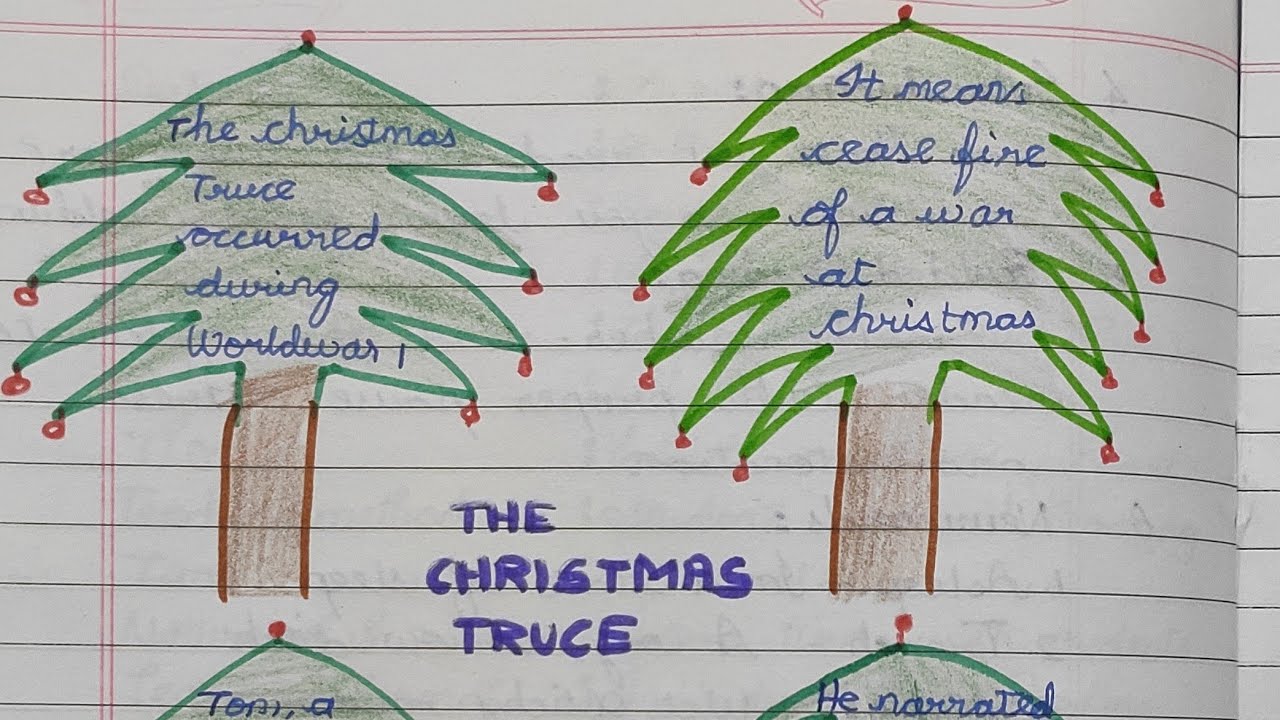 The christmas
Truce
occurred
during
Worldwar 1
It means
cease fire
of a war
at
christmas
THE
CHRISTMAS
TRUCE
Tom, a
He narrated